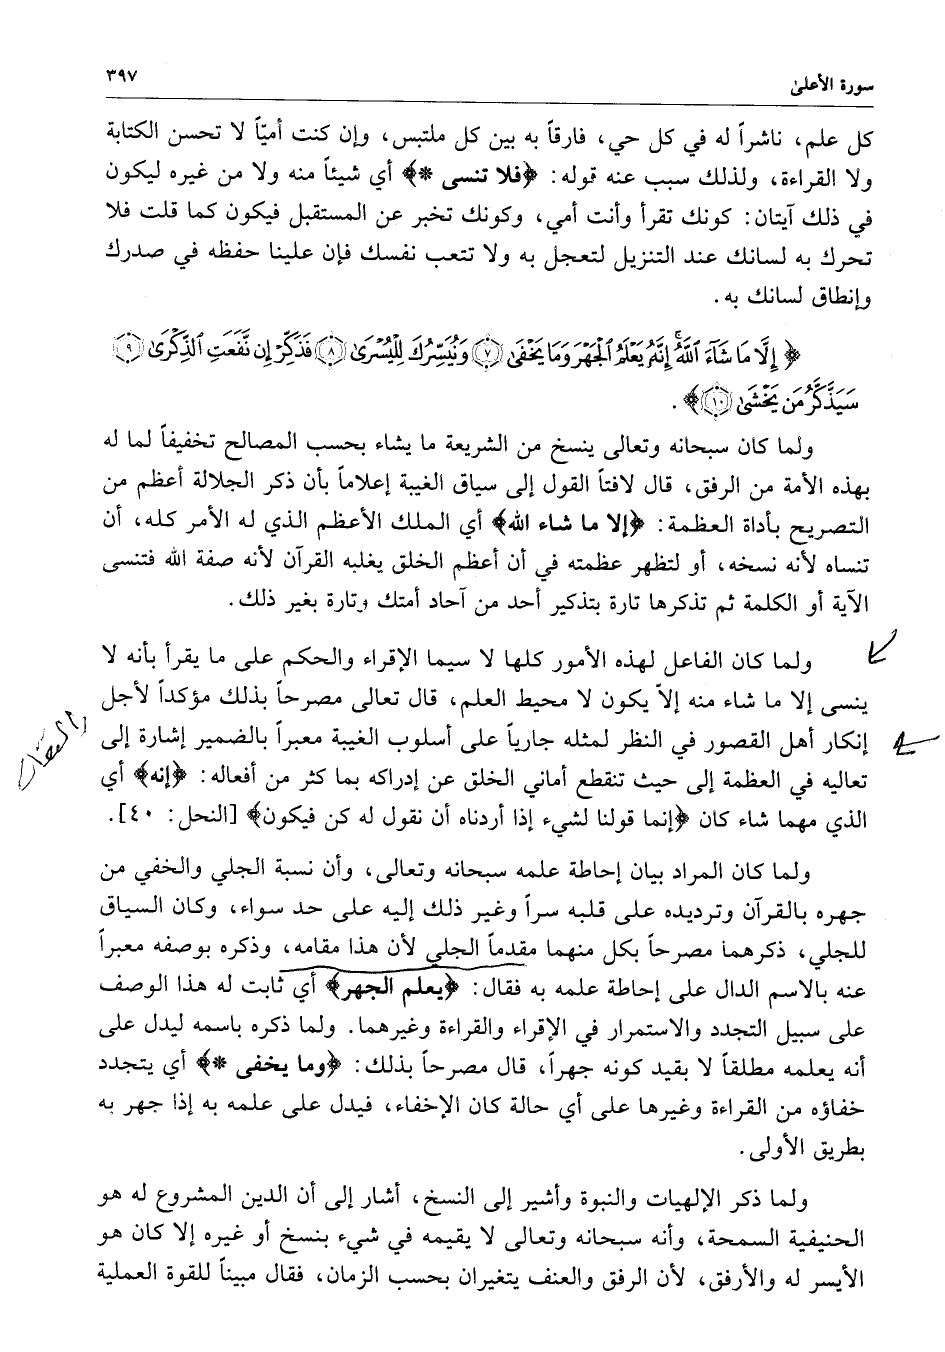 سورة الأعلى ٣٩٧
كل علم، ناشراً له في كل حي، فارقاً به بين كل ملتبس، وإن كنت أميّاً لا تحسن الكتابة
ولا القراءة، ولذلك سبب عنه قوله: ﴿فلا تنسى *﴾ أي شيئاً منه ولا من غيره ليكون
في ذلك آيتان: كونك تقرأ وأنت أمي، وكونك تخبر عن المستقبل فيكون كما قلت فلا
تحرك به لسانك عند التنزيل لتعجل به ولا تتعب نفسك فإن علينا حفظه في صدرك
وإنطاق لسانك به.
﴿إِلَّا مَا شَآءَ ٱللَّهُۚ إِنَّهُۥ يَعْلَمُ ٱلْجَهْرَ وَمَا يَخْفَىٰ ﴿٧﴾ وَنُيَسِّرُكَ لِلْيُسْرَىٰ ﴿٨﴾ فَذَكِّرْ إِن نَّفَعَتِ ٱلذِّكْرَىٰ ﴿٩﴾
سَيَذَّكَّرُ مَن يَخْشَىٰ ﴿١٠﴾﴾.
ولما كان سبحانه وتعالى ينسخ من الشريعة ما يشاء بحسب المصالح تخفيفاً لما له
بهذه الأمة من الرفق، قال لافتاً القول إلى سياق الغيبة إعلاماً بأن ذكر الجلالة أعظم من
التصريح بأداة العظمة: ﴿إلا ما شاء الله﴾ أي الملك الأعظم الذي له الأمر كله، أن
تنساه لأنه نسخه، أو لتظهر عظمته في أن أعظم الخلق يغلبه القرآن لأنه صفة الله فتنسى
الآية أو الكلمة ثم تذكرها تارة بتذكير أحد من آحاد أمتك وتارة بغير ذلك.
ولما كان الفاعل لهذه الأمور كلها لا سيما الإقراء والحكم على ما يقرأ بأنه لا
ينسى إلا ما شاء منه إلاّ يكون لا محيط العلم، قال تعالى مصرحاً بذلك مؤكداً لأجل
إنكار أهل القصور في النظر لمثله جارياً على أسلوب الغيبة معبراً بالضمير إشارة إلى
تعاليه في العظمة إلى حيث تنقطع أماني الخلق عن إدراكه بما كثر من أفعاله: ﴿إنه﴾ أي
الذي مهما شاء كان ﴿إنما قولنا لشيء إذا أردناه أن نقول له كن فيكون﴾ [النحل: ٤٠].
ولما كان المراد بيان إحاطة علمه سبحانه وتعالى، وأن نسبة الجلي والخفي من
جهره بالقرآن وترديده على قلبه سراً وغير ذلك إليه على حد سواء، وكان السياق
للجلي، ذكرهما مصرحاً بكل منهما مقدماً الجلي لأن هذا مقامه، وذكره بوصفه معبراً
عنه بالاسم الدال على إحاطة علمه به فقال: ﴿يعلم الجهر﴾ أي ثابت له هذا الوصف
على سبيل التجدد والاستمرار في الإقراء والقراءة وغيرهما. ولما ذكره باسمه ليدل على
أنه يعلمه مطلقاً لا بقيد كونه جهراً، قال مصرحاً بذلك: ﴿وما يخفى *﴾ أي يتجدد
خفاؤه من القراءة وغيرها على أي حالة كان الإخفاء، فيدل على علمه به إذا جهر به
بطريق الأولى.
ولما ذكر الإلهيات والنبوة وأشير إلى النسخ، أشار إلى أن الدين المشروع له هو
الحنيفية السمحة، وأنه سبحانه وتعالى لا يقيمه في شيء بنسخ أو غيره إلا كان هو
الأيسر له والأرفق، لأن الرفق والعنف يتغيران بحسب الزمان، فقال مبيناً للقوة العملية